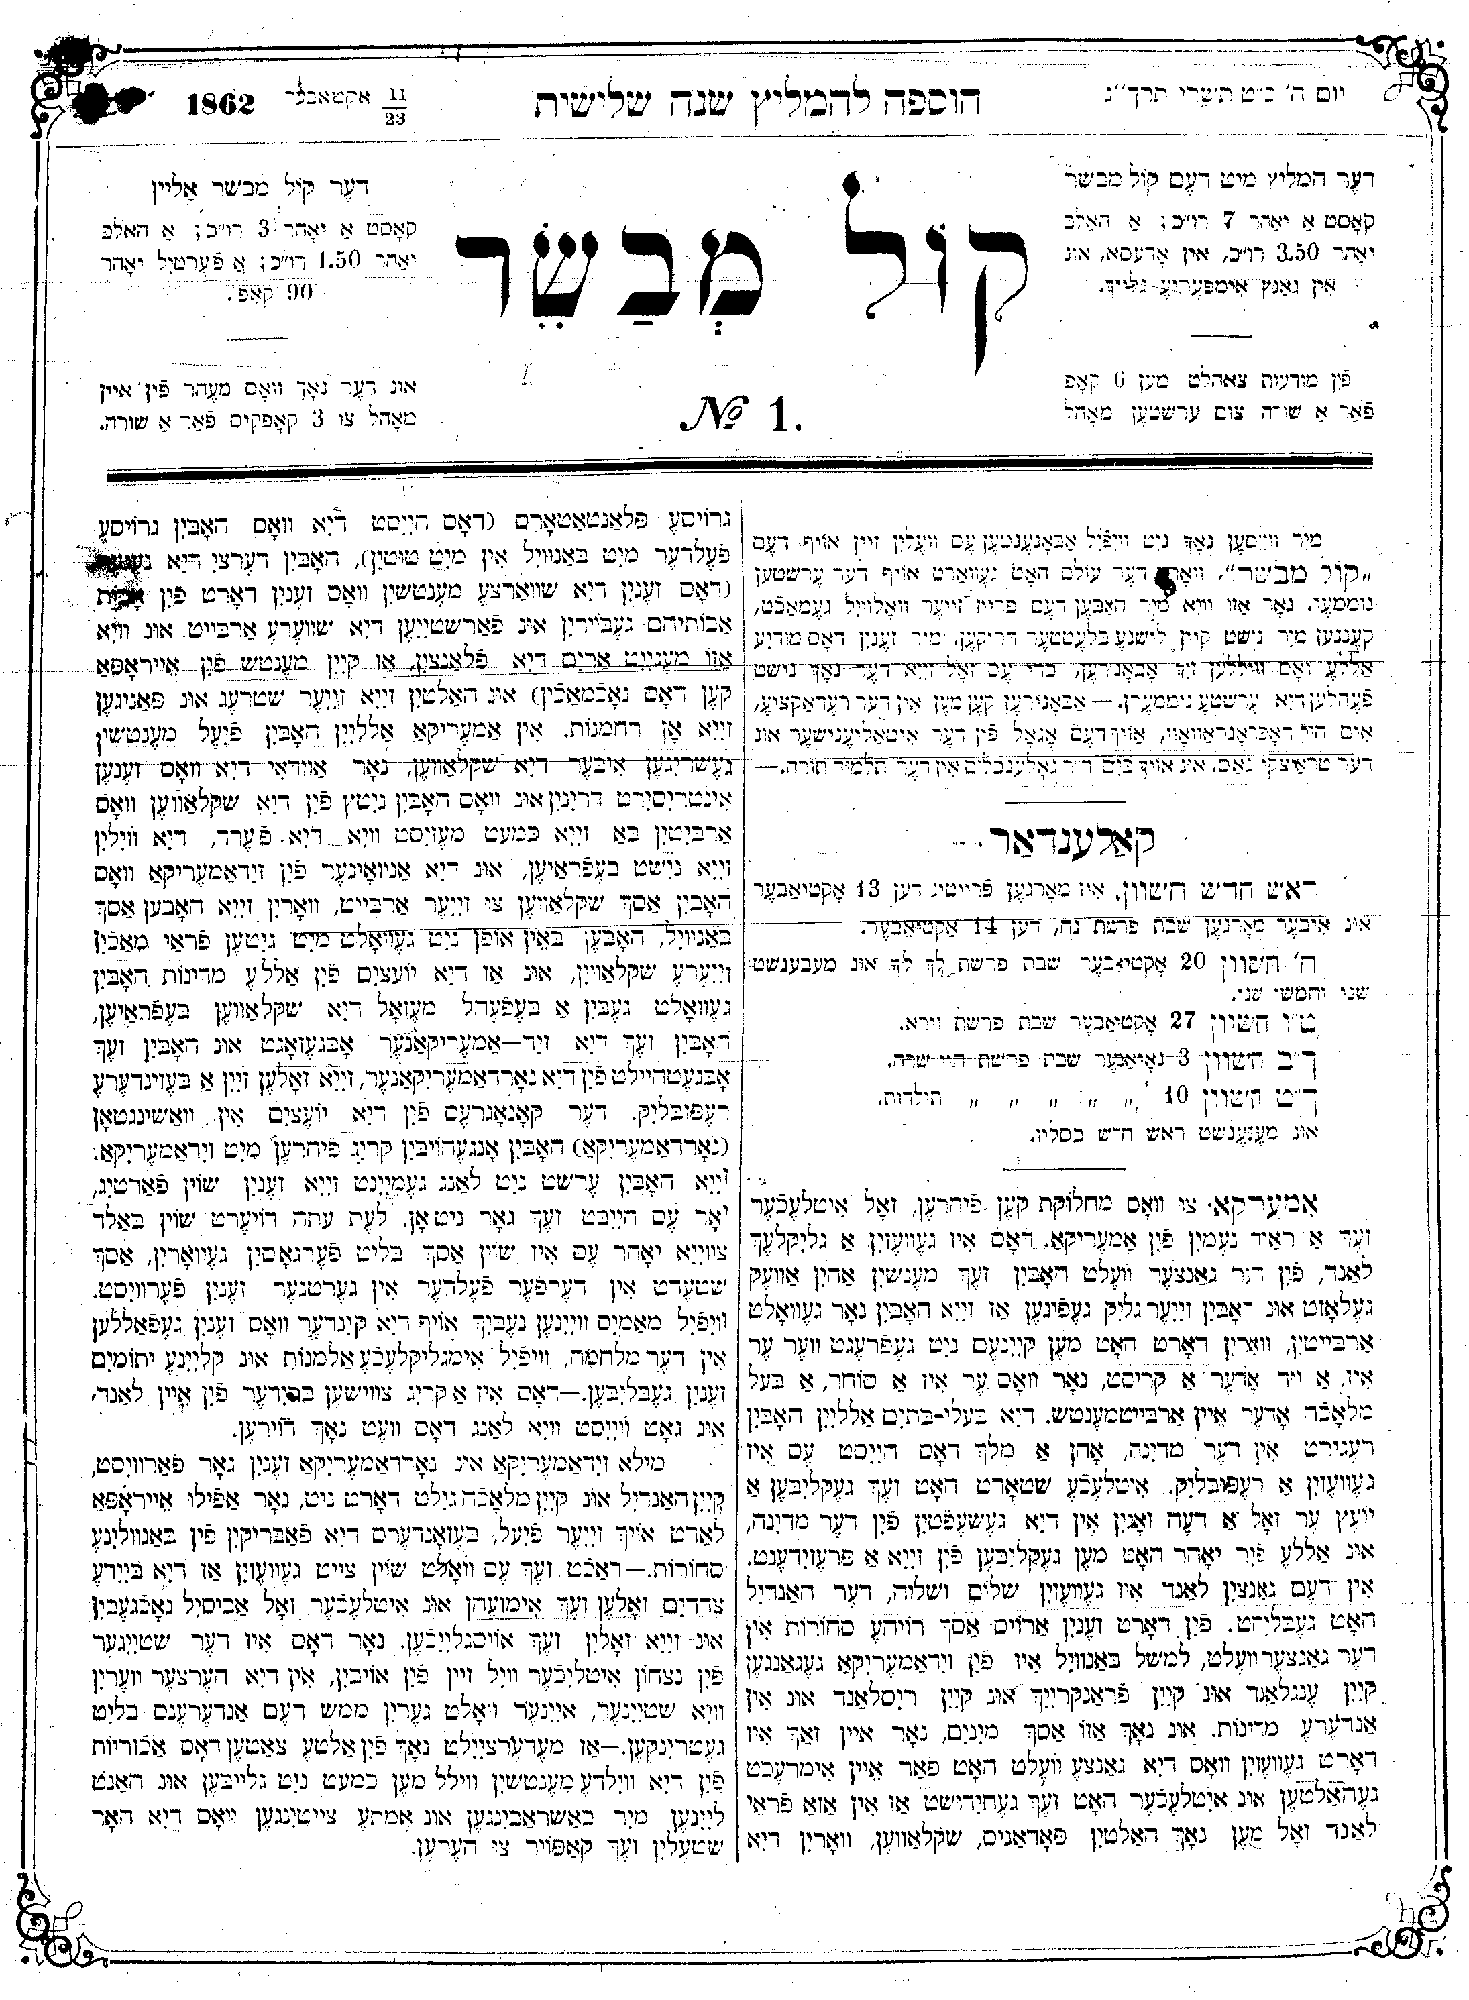 יום ה' כ״ט תשרי תרכ״ג
הוספה להמליץ שנה שלישית
11/23 אקטאבער 1862
דער המליץ מיט דעם קול מבשר
קאָסט אַ יאָהר 7 רו״כ; אַ האַלב
יאָהר 3.50 רו״כ, אין אָדעסא, אונ
אין גאַנץ אימפּעריע גלייך.
פֿין מודעות צאָהלט מען 6 קאָפּ
פֿאַר אַ שורה צום ערשטען מאָהל
קוֹל מְבַשֵׂר
№ 1.
דער קול מבשר אַליין
קאָסט אַ יאָהר 3 רו״כ; אַ האַלב
יאָהר 1.50 רו״כ; אַ פֿערטיל יאָהר
90 קאָפּ.
אונ דער נאָך וואָס מעהר פֿין איין
מאָהל צו 3 קאָפּקיס פֿאַר אַ שורה.
מיר ווייסען נאָך ניט וויפֿיל אַבּאָנענטען עס וועלין זיין אויף דעם
„קול מבשר", וואָס דער עולם האָט געוואַרט אויף דער ערשטען
נוממער. נאָר אַזו וויא מיר האָבּען דעם פּרייז זייער וואָלוויל געמאַכט,
קענען מיר נישט קיין לישנע בּלעטטער דריקען. מיר זענין דאָס מודיע
אַללע וואָס ווילען זיך אַבּאָנירען, כּדי עס זאָל זייא דער נאָך נישט
פֿעהלען דיא ערשטע נוממערן. — אַבּאָנירען קען מען אין דער רעדאַקציע,
דער טראָיצקי גאַס. אונ אויך בּיים ד״ר גאָלדענבּלום אין דער תלמוד תורה.—
קאַלענדאַר
ראש חדש חשוון, איז מאָרגען פֿרייטיג דען 13 אָקטיאַבּער
אונ איבּער מאָרגען שבּת פּרשת נח, דען 14 אָקטיאַבּער.
ה' חשוון 20 אָקטיאַבּער שבּת פּרשת לך לך אונ מעבּענשט
שני וחמישי שני.
ט״ו חשוון 27 אָקטיאַבּער שבּת פּרשת וירא.
כ״ב חשוון 3 נאָיאַבּער שבּת פּרשת חיי שרה.
כ״ט חשוון 10 „ „ „ „ תולדות.
אונ מעבּענשט ראש חדש כּסליו.
אַמעריקאַ. צו וואָס מחלוקת קען פֿיהרען, זאָל איטלעכער
זעך אַ ראַיה נעמין פֿין אַמעריקאַ. דאָס איז געוועזין אַ גליקלעך
לאַנד, פֿין דער גאַנצער וועלט האָבּין זעך מענשין אַהין אַוועק
געלאָזט אונ האָבּין זייער גליק געפֿינען אַז זייא האָבּין נאָר געוואָלט
אַרבּייטין, וואָרין דאָרט האָט מען קיינעם ניט געפֿרעגט ווער ער
איז, אַ ייד אָדער אַ קריסט, נאָר וואָס ער איז אַ סוחר, אַ בּעל
מלאָכה אָדער איין אַרבּייטסמענטש. דיא בּעלי-בּתים אַלליין האָבּין
רעגירט אין דער מדינה, אָהן אַ מלך דאָס הייסט עס איז
געוועזין אַ רעפּובּליק. איטלעכע שטאָדט האָט זעך געקליבּען אַ
יועץ ער זאָל אַ דעה זאָגין אין דיא געשעפֿטין פֿין דער מדינה,
אונ אַללע פֿיר יאָהר האָט מען געקליבּען פֿין זייא אַ פּרעזידענט.
אין דעם גאַנצין לאַנד איז געוועזין שלום ושלוה, דער האַנדיל
האָט געבּליהט. פֿין דאָרט זענין אַרויס אַסך רויהע סחורות אין
דער גאַנצער וועלט, למשל בּאַנוויל איז פֿין זידאַמעריקאַ געגאַנגען
קיין ענגלאַנד אונ קיין פֿראַנקרייך אונ קיין ריסלאַנד אונ אין
אַנדערע מדינות. אונ נאָך אַזו אַסך מינים, נאָר איין זאַך איז
דאָרט געוועזין וואָס דיא גאַנצע וועלט האָט פֿאַר איין אומרעכט
געהאַלטען אונ איטלעכער האָט זעך געחידושט אַז אין אַזאַ פֿראַי
לאַנד זאָל מען נאָך האַלטין פּאָדאַניס, שקלאַווען, וואָרין דיא
גרויסע פּלאַנטאַטאָרס (דאָס הייסט דיא וואָס האָבּין גרויסע
פֿעלדער מיט בּאַנוויל אין מיט טוטין), האָבּין דערצי דיא נעגער
(דאָס זענין דיא שוואַרצע מענטשין וואָס זענין דאָרט פֿין אבות
אבותיהם געבּוירין אונ פֿאַרשטייען דיא שווערע אַרבּייט אונ וויא
אַזו מעגייט אַרים דיא פֿלאַנצין, אַז קיין מענטש פֿין אייראָפּאַ
קען דאָס נאָכמאַכין) אונ האַלטין זייא זייער שטרענג אונ פּאַניגען
זייא אָן רחמנות. אין אַמעריקאַ אַלליין האָבּין פֿיעל מענטשין
געשריגען איבּער דיא שקלאַווען, נאָר אַוודאי דיא וואָס זענען
אינטריסירט דרינין אונ וואָס האָבּין ניטץ פֿין דיא שקלאַווען וואָס
אַרבּיטין בּאַ זייא כּמעט מעזיסט וויא דיא פֿערד, דיא ווילין
זייא נישט בּעפֿראַיען, אונ דיא איינוואוינער פֿין זידאַמעריקאַ וואָס
האָבּין אַסך שקלאַווען צי זייער אַרבּייט, וואָרין זייא האָבּען אַסך
בּאַנוויל, האָבּען בּאין אופן ניט געוואָלט מיט גיטען פֿראַי מאַכין
זייערע שקלאַווין, אונ אַז דיא יועצים פֿין אַללע מדינות האָבּין
געוואָלט געבּין אַ בּעפֿעהל מעזאָל דיא שקלאַווען בּעפֿראַיען,
האָבּין זעך דיא זיד—אַמעריקאַנער אָבּגעזאָגט אונ האָבּין זעך
אָבּגעטהיילט פֿין דיא נאָרדאַמעריקאַנער, זייא זאָלען זיין אַ בּעזונדערע
רעפּובּליק. דער קאָנגרעס פֿין דיא יועצים אין וואַשינגטאָן
(נאָרדאַמעריקאַ) האָבּין אָנגעהויבּין קריג פֿיהרען מיט זידאַמעריקאַ:
זייא האָבּין ערשט ניט לאַנג געמיינט זייא זענין שוין פֿאַרטיג,
יאָ עס הייבּט זעך גאָר ניט אָן. לעת עתה דויערט שוין בּאַלד
צווייא יאָהר עס איז שוין אַסך בּליט פֿערגאָסין געוואָרין, אַסך
שטעדט אין דערפֿער פֿעלדער אין גערטנער זענין פֿערוויסט.
וויפֿיל מאַמים וויינען נעבּיך אויף דיא קינדער וואָס זענין געפֿאַללען
אין דער מלחמה, וויפֿיל אימגליקלעכע אַלמנות אונ קליינע יתומים
זענין געבּליבּען.—דאָס איז אַ קריג צווישען בּרידער פֿין איין לאַנד,
אונ גאָט ווייסט וויא לאַנג דאָס וועט נאָך דוירען.
מילא זידאַמעריקאַ אינ נאָרדאַמעריקאַ זענין גאָר פֿאַרוויסט,
קיין האַנדיל אונ קיין מלאָכה גילט דאָרט ניט, נאָר אַפֿילו אייראָפּאַ
לאַדט אויך זייער פֿיעל, בּעזאָנדערס דיא פֿאַבּריקין פֿין בּאַנוולינע
סחורות.—ראַכט זעך עס וואָלט שוין צייט געוועזין אַז דיא בּיידע
צדדים זאָלען זעך אימזעהן אונ איטלעכער זאָל אַבּיסיל נאָכגעבּין
אונ זייא זאָלין זעך אויסגלייכען. נאָר דאָס איז דער שטייגער
פֿין נצחון איטליכער וויל זיין פֿין אויבּין, אין דיא הערצער ווערין
וויא שטיינער, איינער וואָלט גערין ממש דעם אַנדערענס בּליט
געטרינקען.—אַז מעדערציילט נאָך פֿין אַלטע צאַטען דאָס אכזריות
פֿין דיא ווילדע מענטשין וויל מען כּמעט ניט גלייבּען אונ האַנט
לייענען מיר בּאַשראַבּינגען אונ אמתע צייטינגען וואָס דיא האָר
שטעלין זעך קאַפּויר צי הערען.